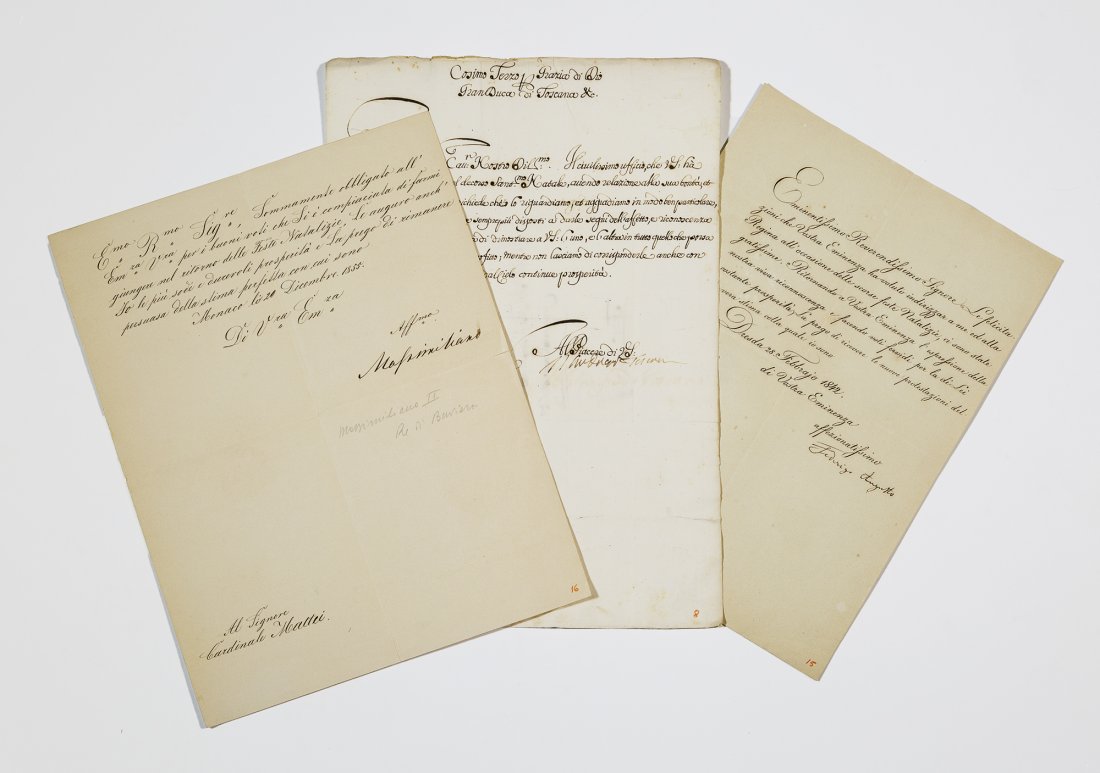 Emo Rmo Sigre
Sommamente obbligato all'
Emza Vra per i buoni voti che Si è compiaciuta di farmi
giungere nel ritorno delle Feste Natalizie, Le auguro anch'
Io le più and durevoli prosperità e La prego di rimanere
persuasa della stima perfetta con cui sono
Monaco li 20 Dicembre 1855.
Di Vra Emza
Affmo
Massimiliano
Massimiliano II
Re di Baviera
Al Signore
Cardinale Mattei.
16
Cosimo Terzo p Grazia di Dio
Gran Duca di Toscana &c.
Nostro Dilmo. Il civilissimo uffizio, che VS: hà
decorso Sanmo Natale, avendo relazione alla sua bontà, et
richiede che lo riguardiamo, et aggradiamo in modo ben particolare,
sempre più disposti a darle segni dell'affetto, e riconoscenza
di dimostrare a VS: l'uno, e l'altra in tutto quello che possa
mentre non lasciamo di corrisponderle anche con
dal Cielo continue prosperità.
Al Piacere di VS:
8
Eminentissimo Reverendissimo Signore. Le felicita-
zioni che Vostra Eminenza ha voluto indirizzar a me ed alla
Regina all'occasione delle scorse feste Natalizie, ci sono state
gratissime. Ritornando a Vostra Eminenza l'espressione della
nostra viva riconoscenza e facendo voti fervidi per la di Lei
costante prosperità, La prego di ricevere le nuove protestazioni del
vera stima alla quale io sono
Dresda 25 Febbrajo 1842.
di Vostra Eminenza
affezionatissimo
Federigo Augusto
15